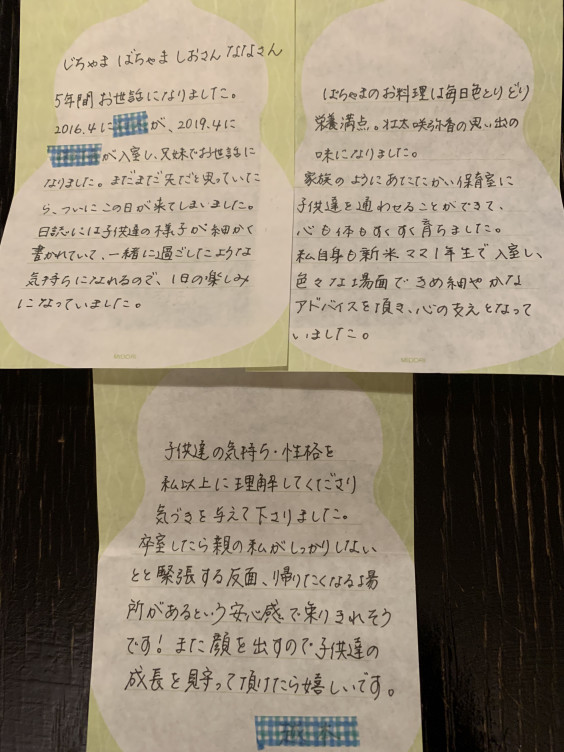 じちゃま ばちゃま しおさん ななさん
5年間お世話になりました。
2016.4に が、2019.4に
が入室し、兄妹でお世話に
なりました。まだまだ先だと思っていた
ら、ついにこの日が来てしまいました。
日誌には子供達の様子が細かく
書かれていて、一緒に過ごしたような
気持ちになれるので、1日の楽しみ
になっていました。
ばちゃまのお料理は毎日色とりどり
栄養満点。壮太 咲弥香の思い出の
味になりました。
家族のようにあたたかい保育室に
子供達を通わせることができて、
心も体もすくすく育ちました。
私自身も新米ママ1年生で入室し、
色々な場面できめ細やかな
アドバイスを頂き、心の支えとなって
いました。
子供達の気持ち・性格を
私以上に理解してくださり
気づきを与えて下さりました。
卒室したら親の私がしっかりしない
とと緊張する反面、帰りたくなる場
所があるという安心感で乗りきれそう
です！また顔を出すので子供達の
成長を見守って頂けたら嬉しいです。